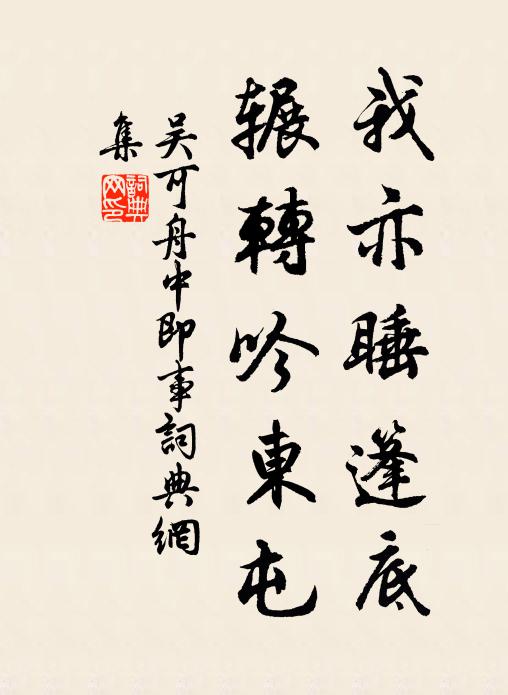 我亦睡蓬底
辗轉吟東屯
吴可舟中即事詞典網
集
詞典网印